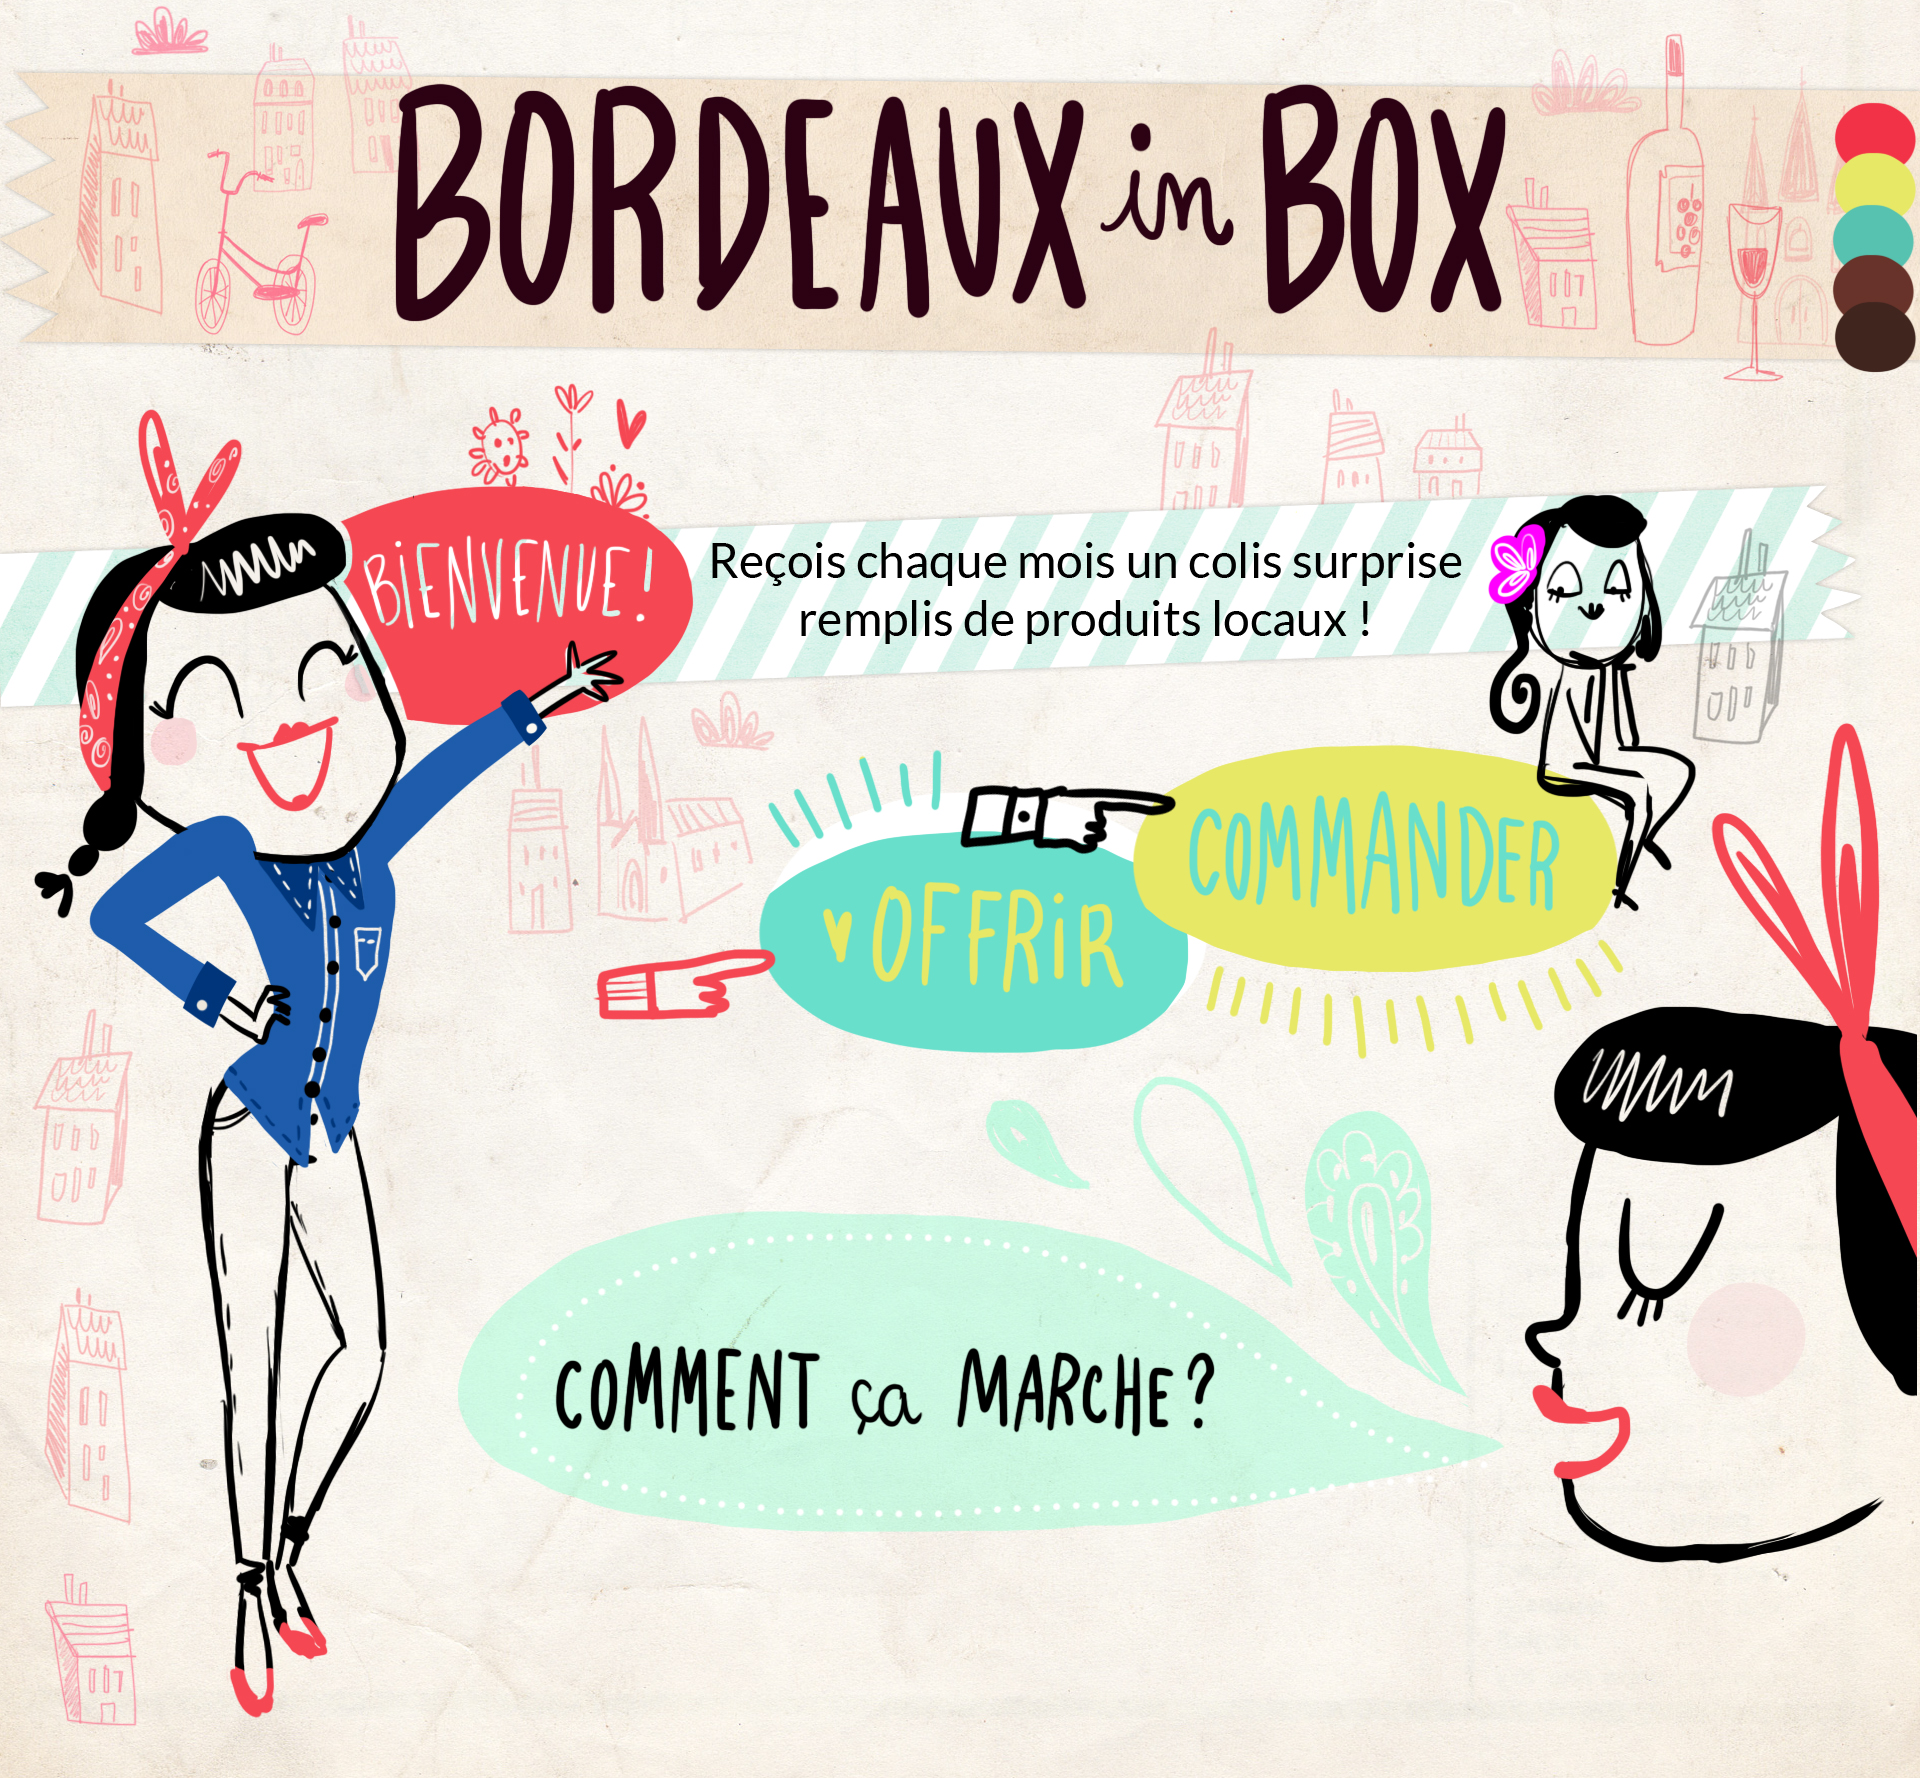 BORDEAUX in BOX
BIENVENUE !
Reçois chaque mois un colis surprise
remplis de produits locaux !
COMMANDER
OFFRIR
COMMENT ça MARCHE ?